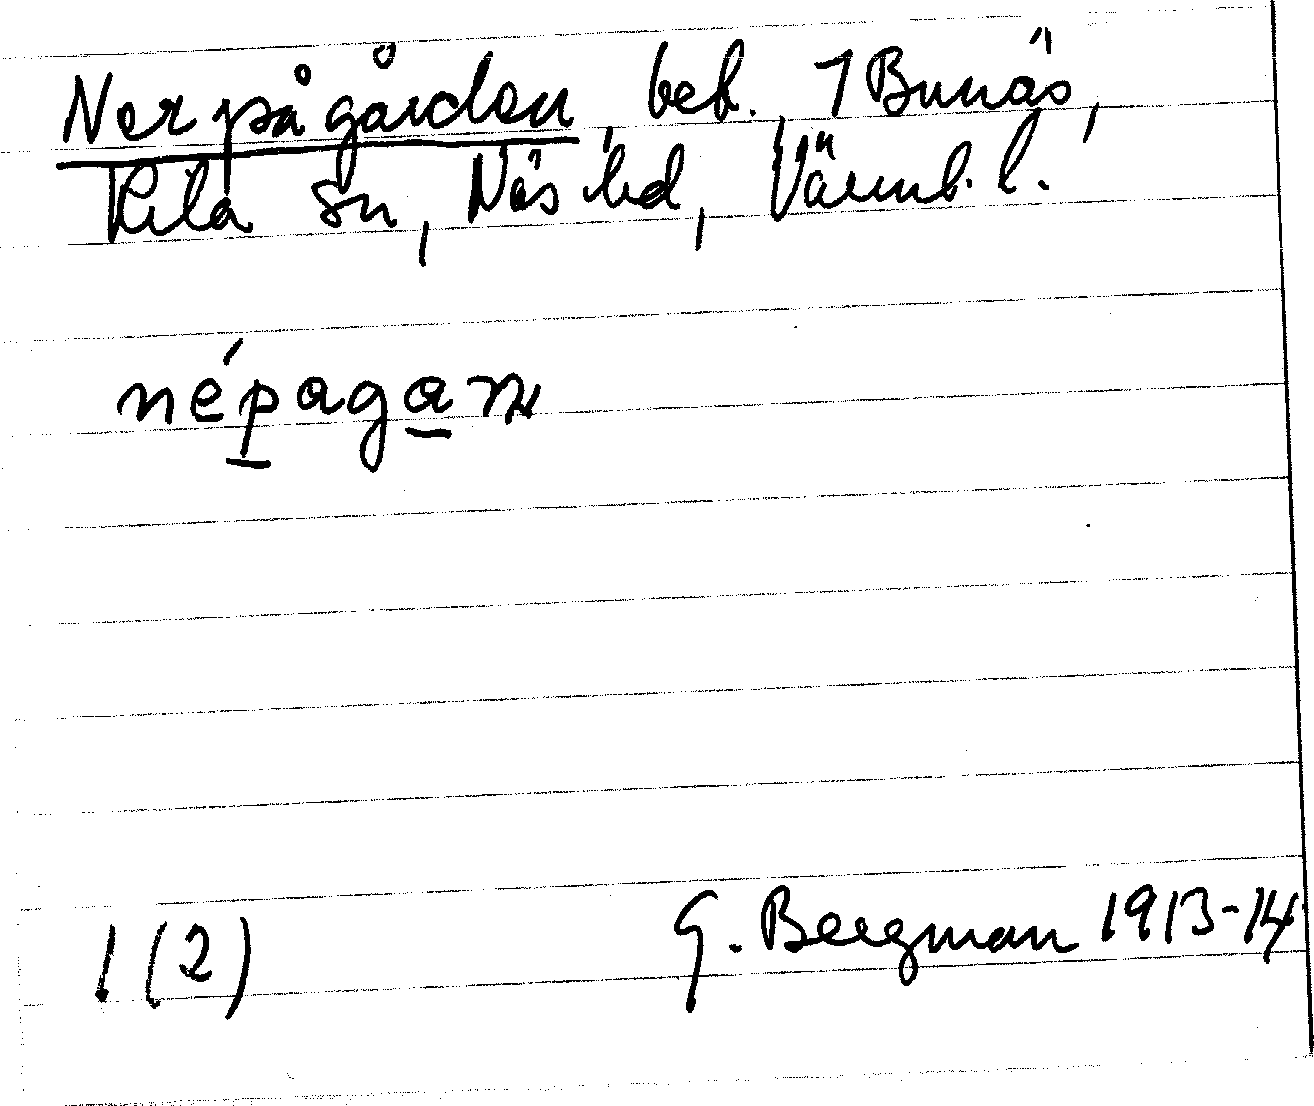 Nerpågården, beb. 1 Bunäs,
Kila sn, Näs hd, Värmb. l.
népagaɳ
1 (2) G. Bergman 1913-14